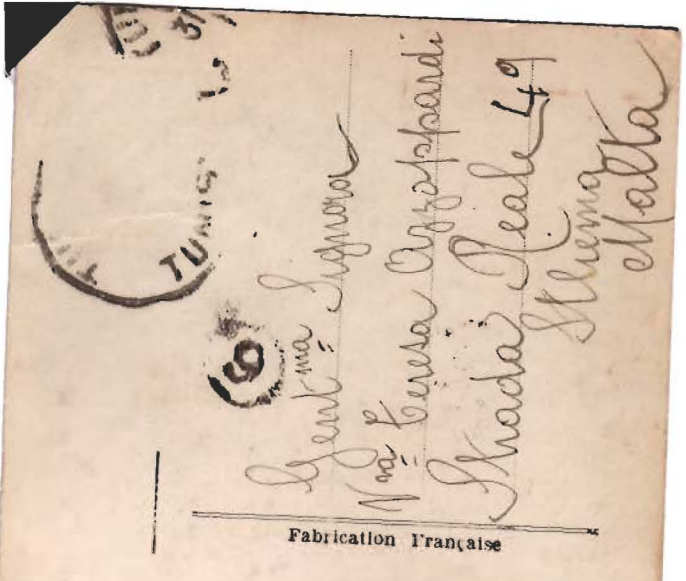 TUNIS
Gent.ma Signora
V.va Teresa Azzoppardi
Strada Reale 49
Sliema
Malta
Fabrication Française